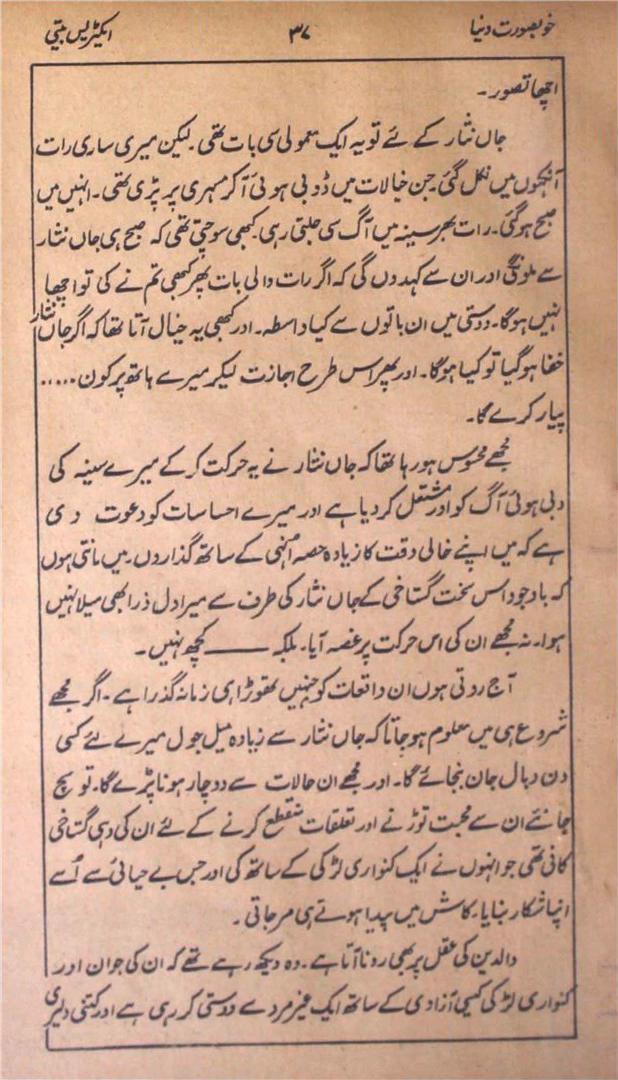 خوبصورت دنیا ۳۷ ایکٹریس بیتی
اچھا تصور۔
جاں نثار کے لئے تو یہ ایک معمولی سی بات تھی۔ لیکن میری ساری رات
آنکھوں میں نکل گئی۔ جن خیالات میں ڈوبی ہوئی آکر مسہری پر پڑی تھی۔ انہیں میں
صبح ہوگئی۔ رات بھر سینہ میں آگ سی جلتی رہی۔ کبھی سوچتی تھی کہ صبح ہی جاں نثار
سے ملونگی اور ان سے کہدوں گی کہ اگر رات والی بات پھر کبھی تم نے کی تو اچھا
نہیں ہوگا۔ دوستی میں ان باتوں سے کیا واسطہ۔ اور کبھی یہ خیال آتا تھا کہ اگر جاں نثار
خفا ہوگیا تو کیا ہوگا۔ اور پھر اس طرح اجازت لیکر میرے ہاتھ پر کون.....
پیار کرے گا۔
مجھے محسوس ہو رہا تھا کہ جاں نثار نے یہ حرکت کر کے میرے سینہ کی
دبی ہوئی آگ کو اور مشتعل کر دیا ہے اور میرے احساسات کو دعوت دی
ہے کہ میں اپنے خالی وقت کا زیادہ حصہ اُنہی کے ساتھ گذاروں۔ میں مانتی ہوں
کہ باوجود اس سخت گستاخی کے جاں نثار کی طرف سے میرا دل ذرا بھی میلا نہیں
ہوا۔ نہ مجھے ان کی اس حرکت پر غصہ آیا۔ بلکہ ــــــــ کچھ نہیں۔
آج روتی ہوں ان واقعات کو جنہیں تھوڑا ہی زمانہ گذرا ہے۔ اگر مجھے
شروع ہی میں معلوم ہو جاتا کہ جاں نثار سے زیادہ میل جول میرے لئے کسی
دن وبال جان بنجائے گا۔ اور مجھے ان حالات سے دوچار ہونا پڑے گا۔ تو سچ
جانئے ان سے محبت توڑنے اور تعلقات منقطع کرنے کے لئے ان کی وہی گستاخی
کافی تھی جو انہوں نے ایک کنواری لڑکی کے ساتھ کی اور جس بے حیائی سے اُسے
اپنا شکار بنایا۔ کاش میں پیدا ہوتے ہی مر جاتی۔
والدین کی عقل پر بھی رونا آتا ہے۔ وہ دیکھ رہے تھے کہ ان کی جوان اور
کنواری لڑکی کیسی آزادی کے ساتھ ایک غیر مرد سے دوستی کر رہی ہے اور کتنی دلیری